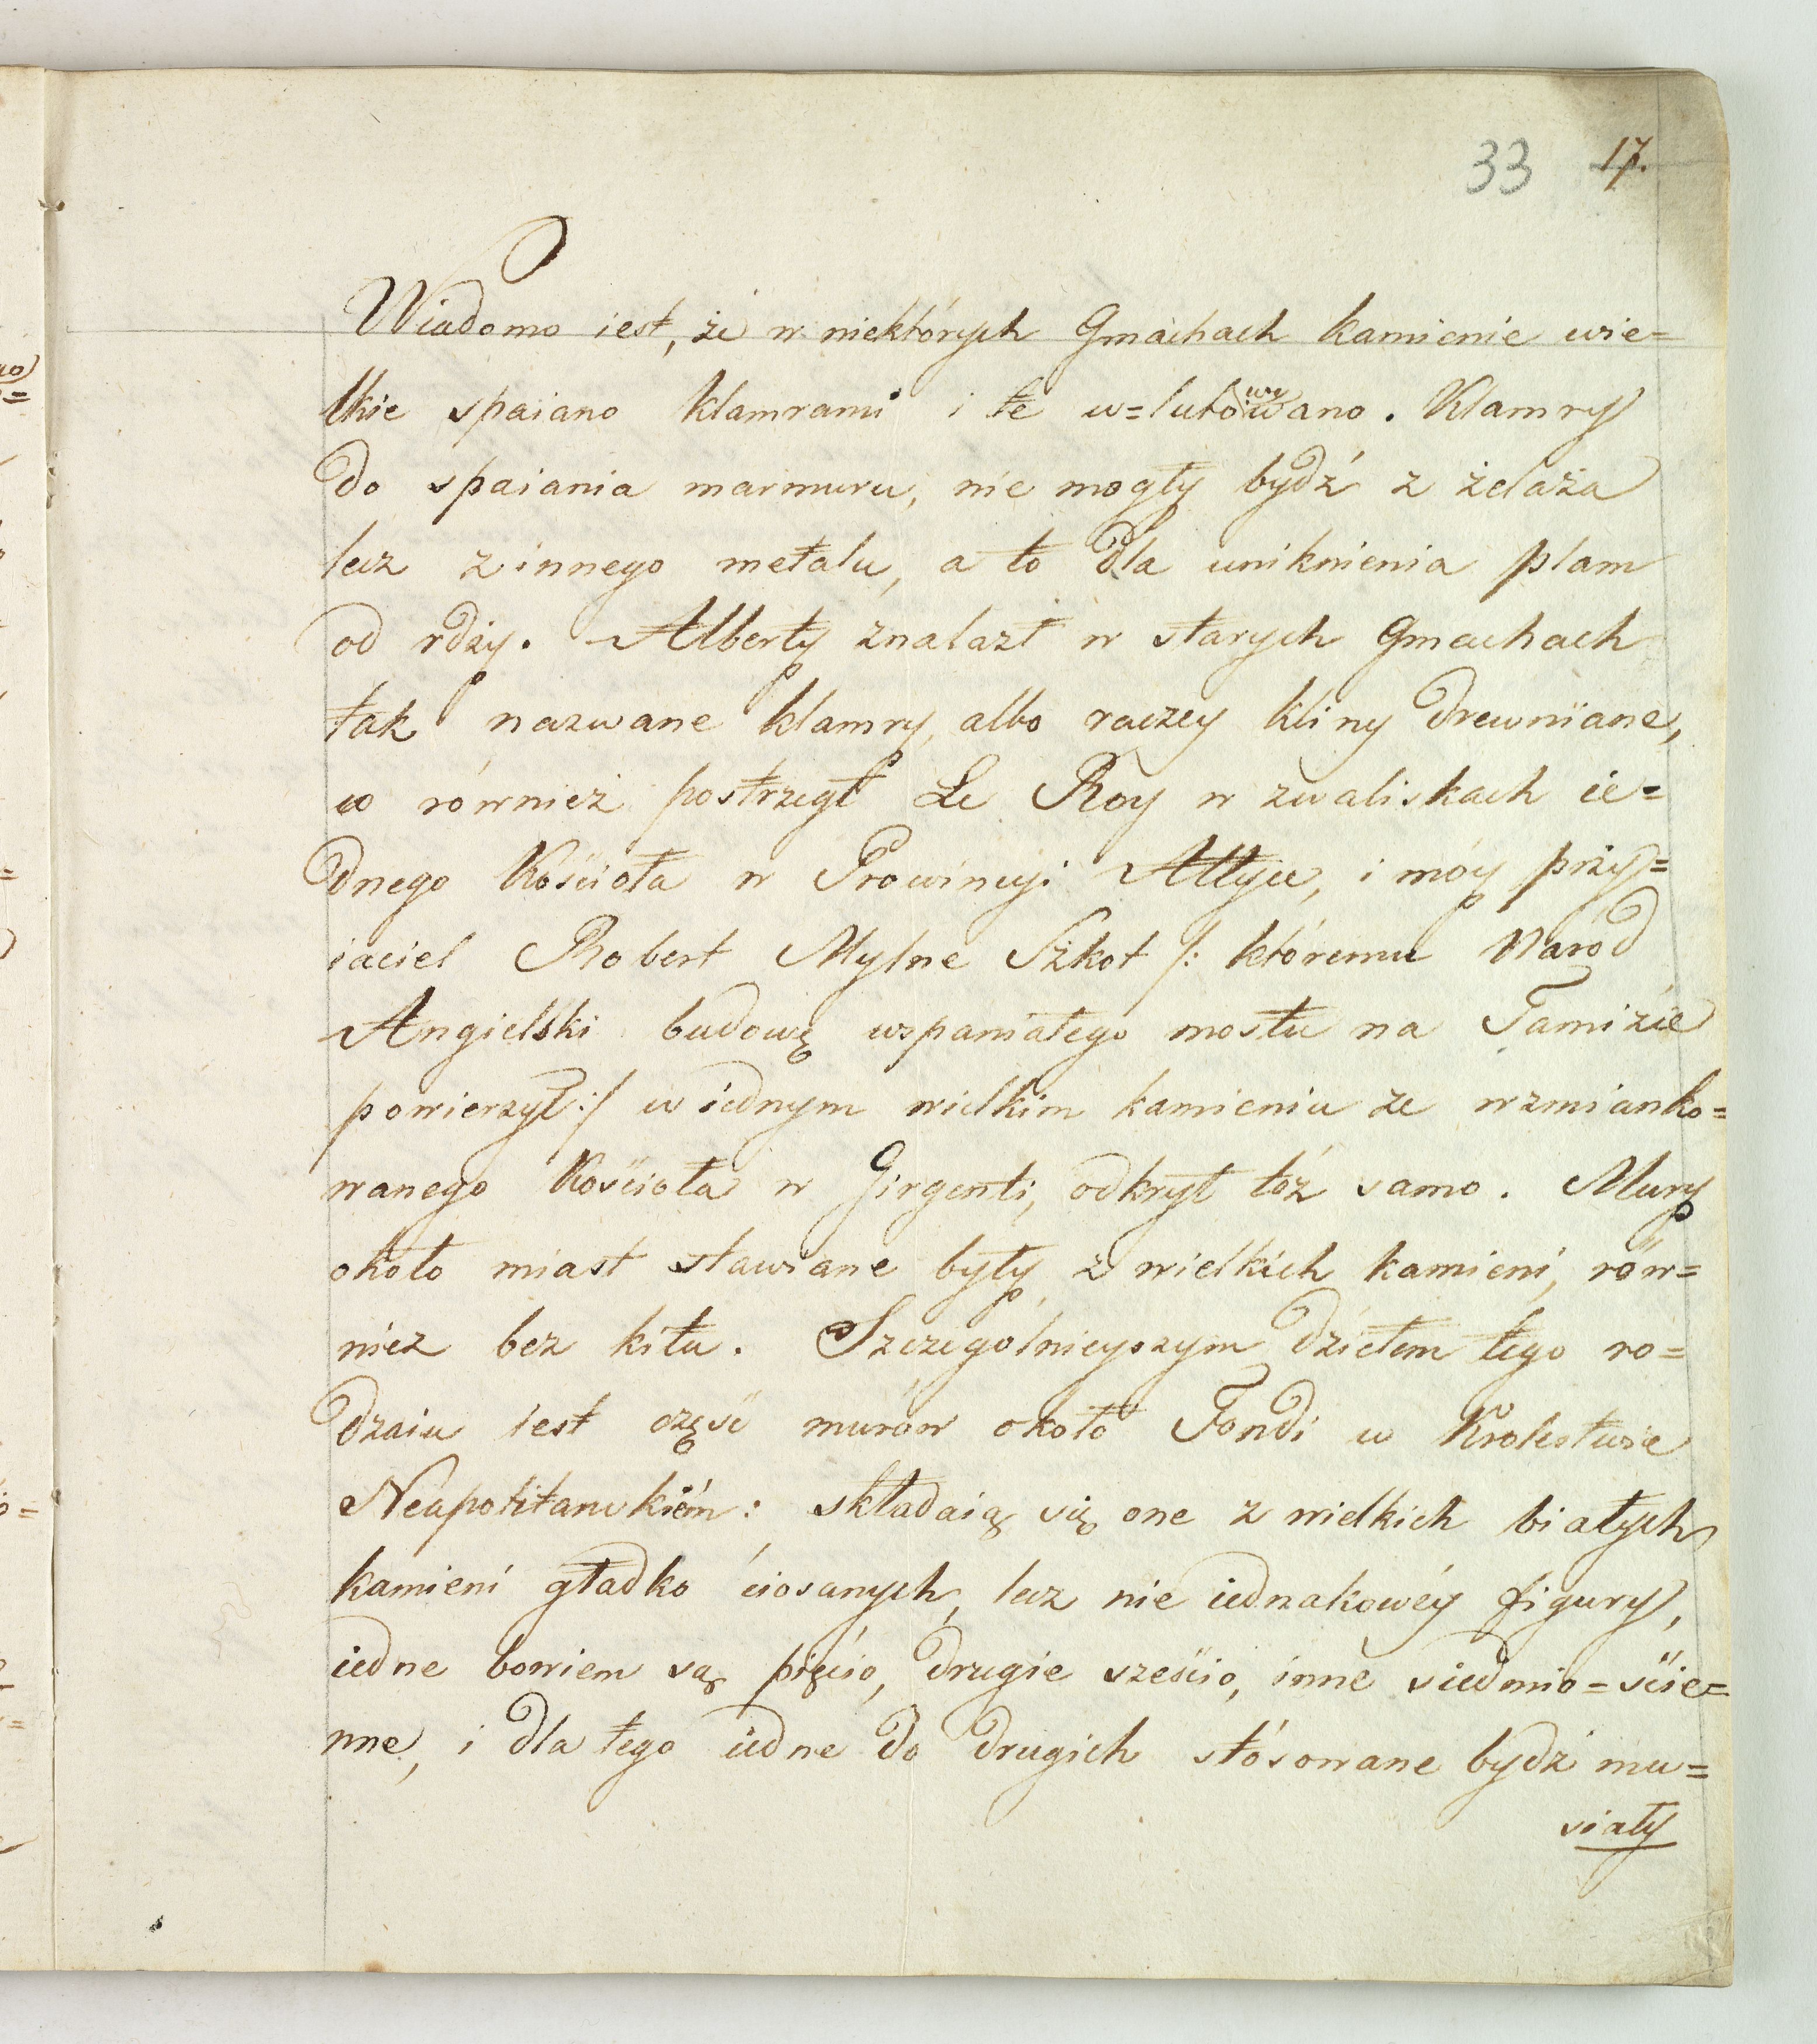 33 17.
Wiadomo iest, że w niektórych Gmachach kamienie wie=
lkie spaiano klamrami i te w=lutowywano. Klamry
do spaiania marmuru, nie mogły bydź z żelaza
lecz z innego metalu, a to dla uniknienia plam
od rdzy. Alberty znalazł w starych Gmachach
tak nazwane klamry, albo raczey kliny drewniane,
co również postrzegł Le Roy w zwaliskach ie=
dnego Kościoła w Prowincyi Attyce, i móy przy=
iaciel Robert Mylne Szkot /: któremu Naród
Angielski budowę wspaniałego mostu na Tamizie
powierzył :/ w iednym wielkim kamieniu ze wzmianko=
wanego Kościoła w Girgenti, odkrył tóż samo. Mury
około miast stawiane były z wielkich kamieni, rów=
niez bez kitu. Szczególnieyszym dziełem tego ro=
dzaiu iest część murów około Fondi w Krolestwie
Neapolitanskiém: składaią się one z wielkich białych
kamieni gładko ciosanych, lecz nie iednakowéy figury,
iedne bowiem są pięcio, drugie sześcio, inne siedmio=ście=
nne, i dla tego iedne do drugich stósowane bydź mu=
siały